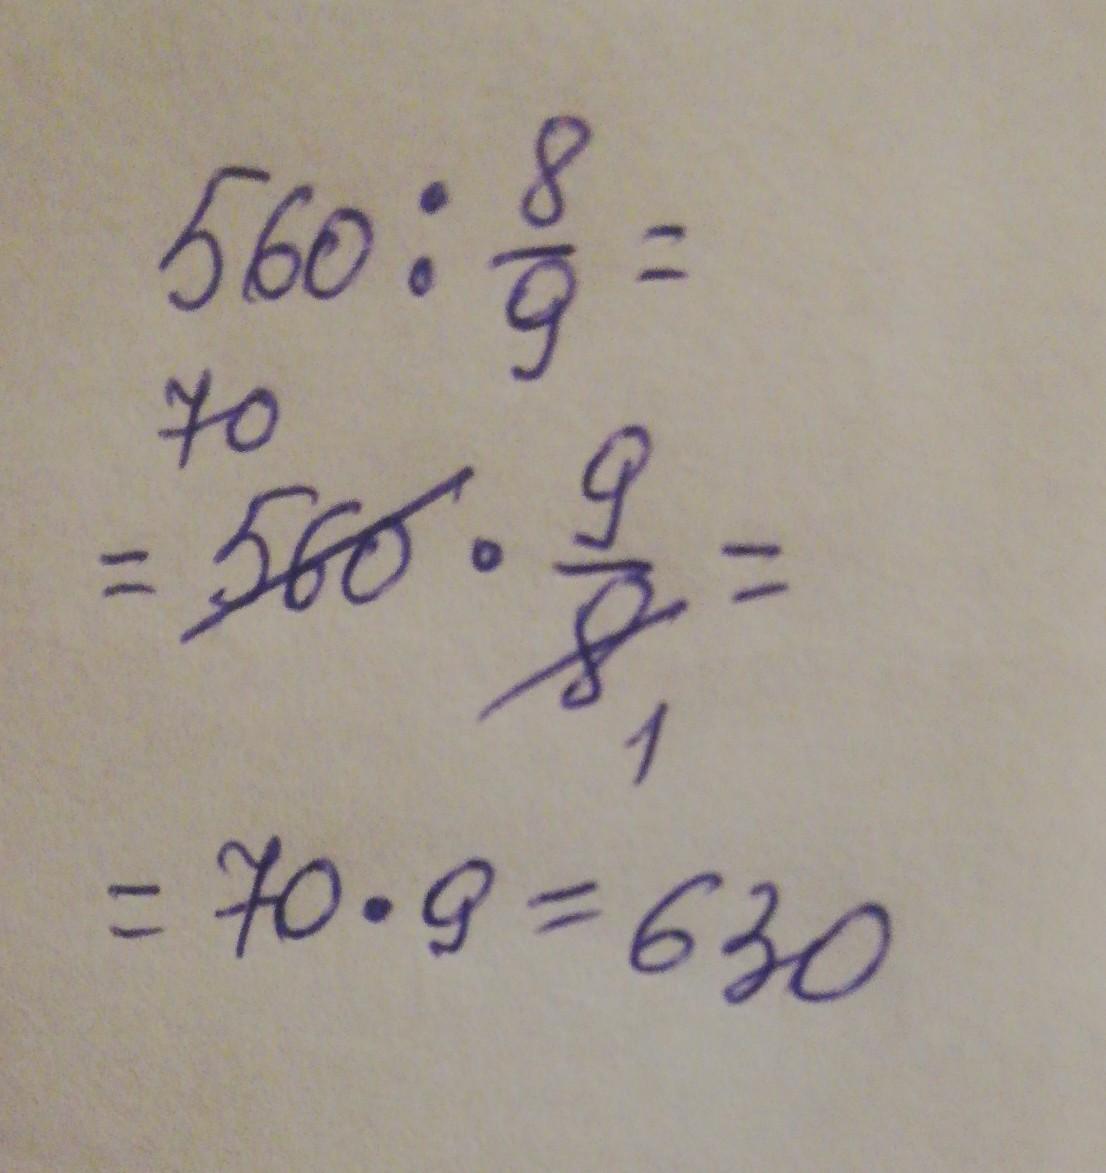 560 : 8/9 =
70
= 560 · 9/8 =
1
= 70 · 9 = 630